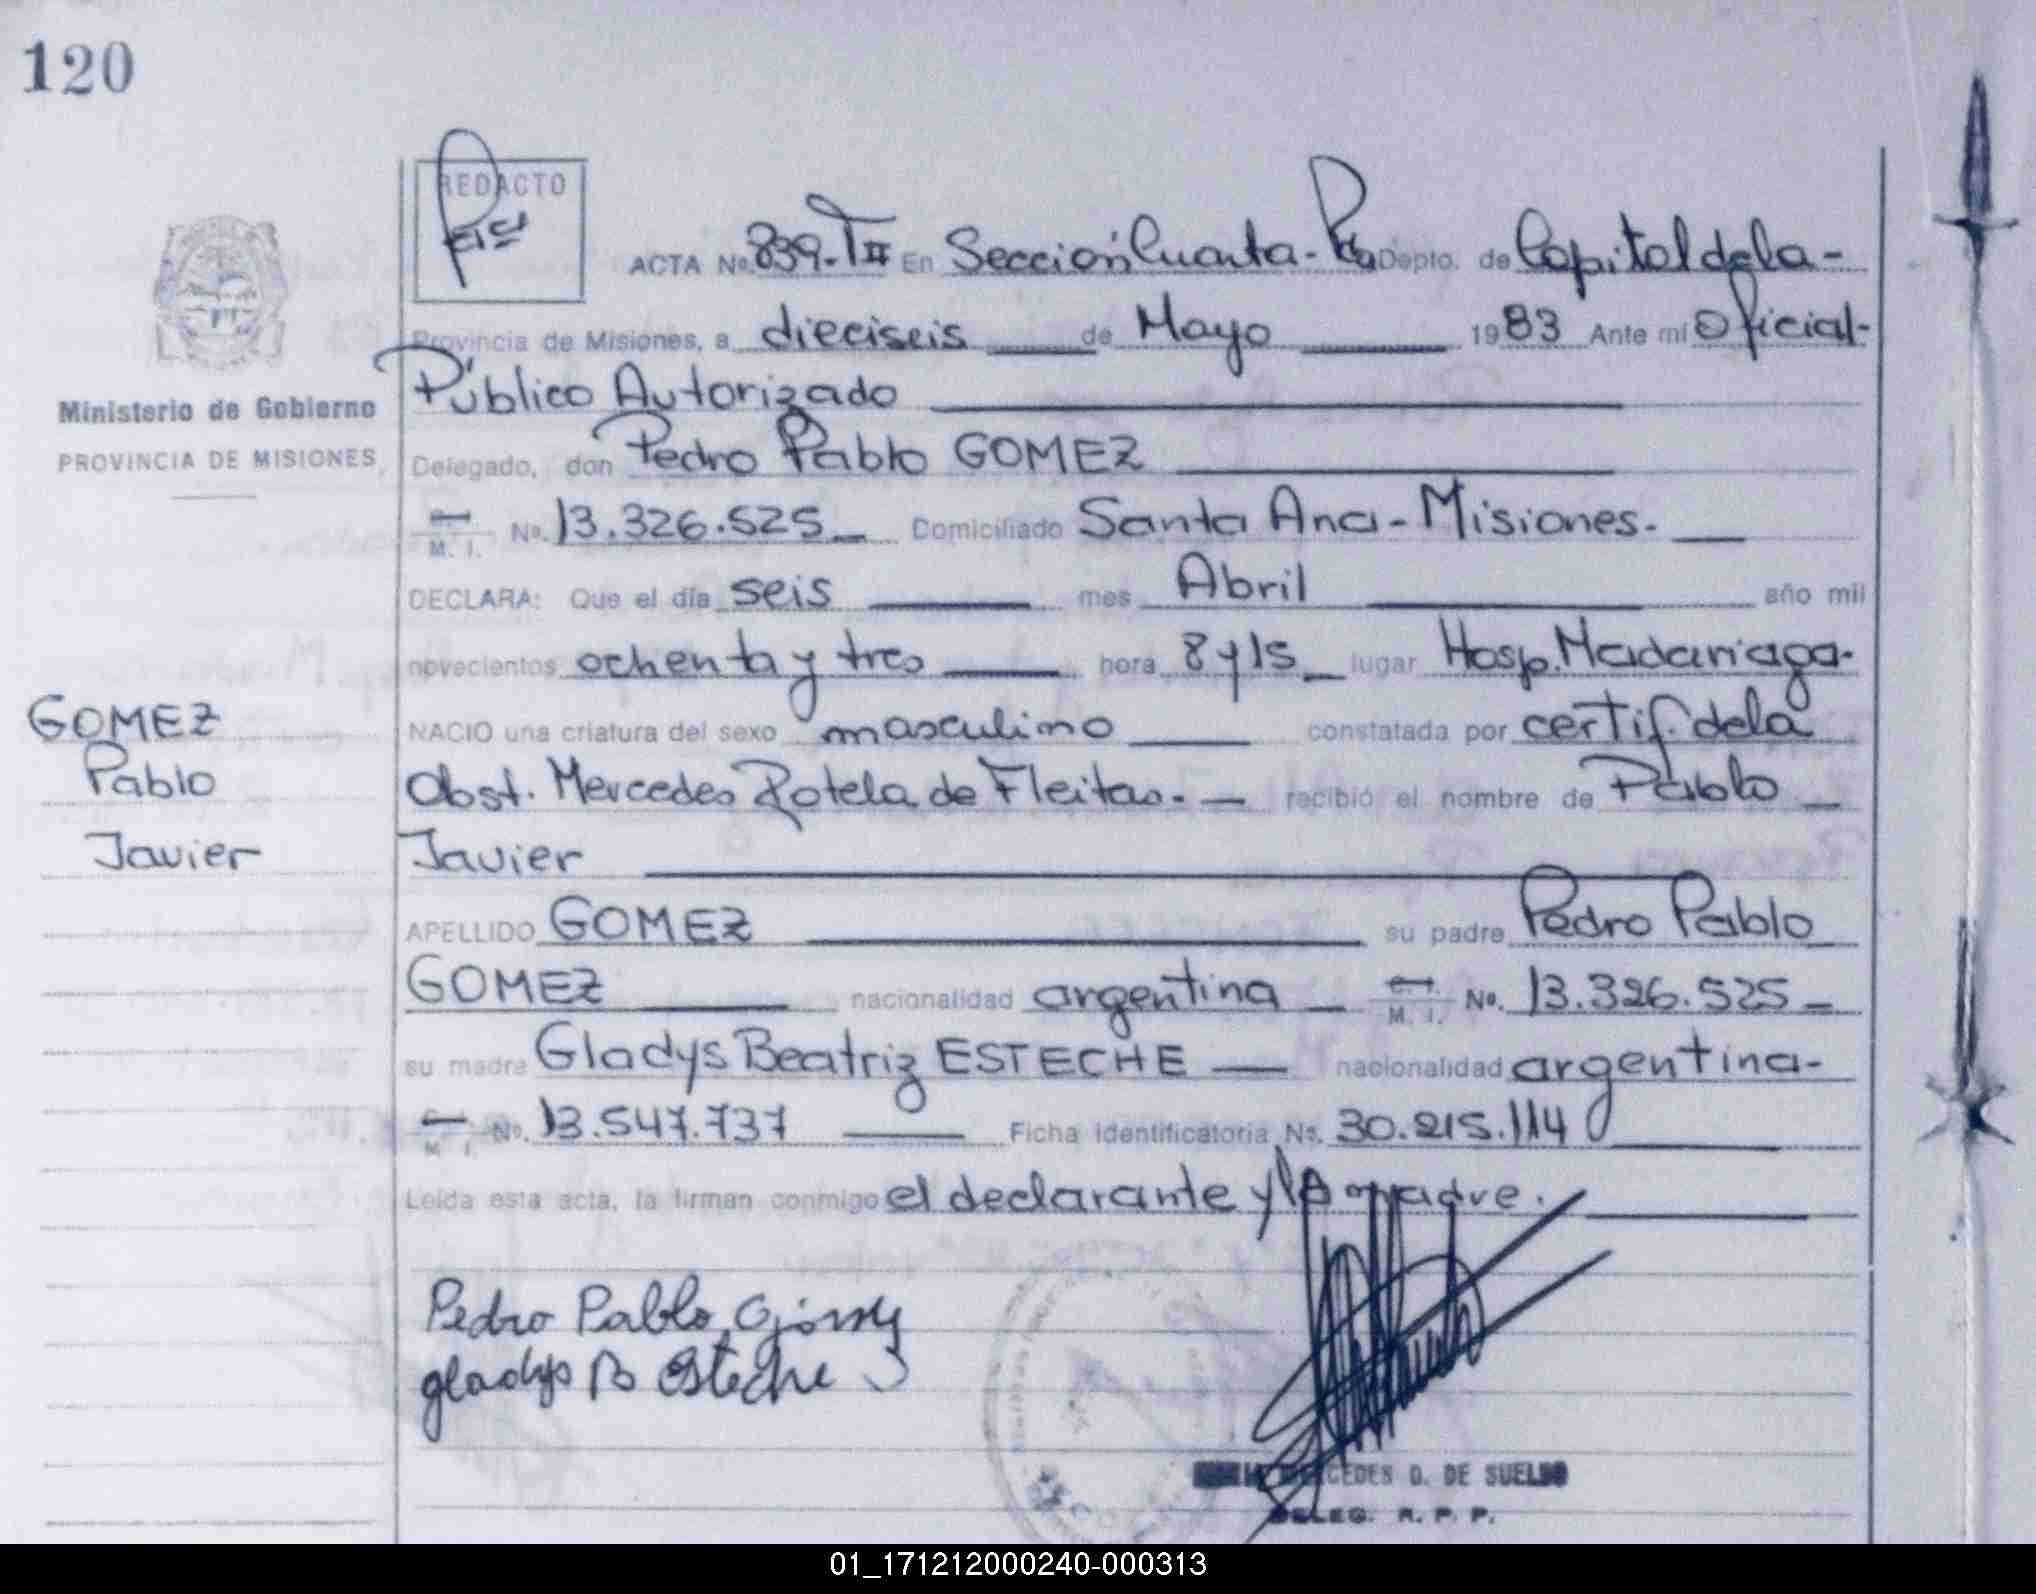 120
REDACTO
ACTA No. 839-TIII En Sección Cuarta - Pdas Depto. de Capital de la -
Provincia de Misiones, a dieciseis de Mayo 1983 Ante mí Oficial -
Público Autorizado
Ministerio de Gobierno
PROVINCIA DE MISIONES,
Delegado, don Pedro Pablo GOMEZ
M. I. No. 13.326.525 Domiciliado Santa Ana - Misiones.
DECLARA: Que el día seis mes Abril año mil
novecientos ochenta y tres hora 8 y 15 lugar Hosp. Madariaga.
GOMEZ
Pablo
Javier
NACIO una criatura del sexo masculino constatada por certif. de la
Obst. Mercedes Rotela de Fleitas. recibió el nombre de Pablo
Javier
APELLIDO GOMEZ su padre Pedro Pablo
GOMEZ nacionalidad argentina M. I. No. 13.326.525
su madre Gladys Beatriz ESTECHE nacionalidad argentina -
M. I. No. 13.547.737 Ficha identificatoria No. 30.215.114
Leída esta acta, la firman conmigo el declarante y la madre.
Pedro Pablo Gómez
gladys B Esteche
MERCEDES D. DE SUELDO
DELEG. R. P. P.
01_171212000240-000313